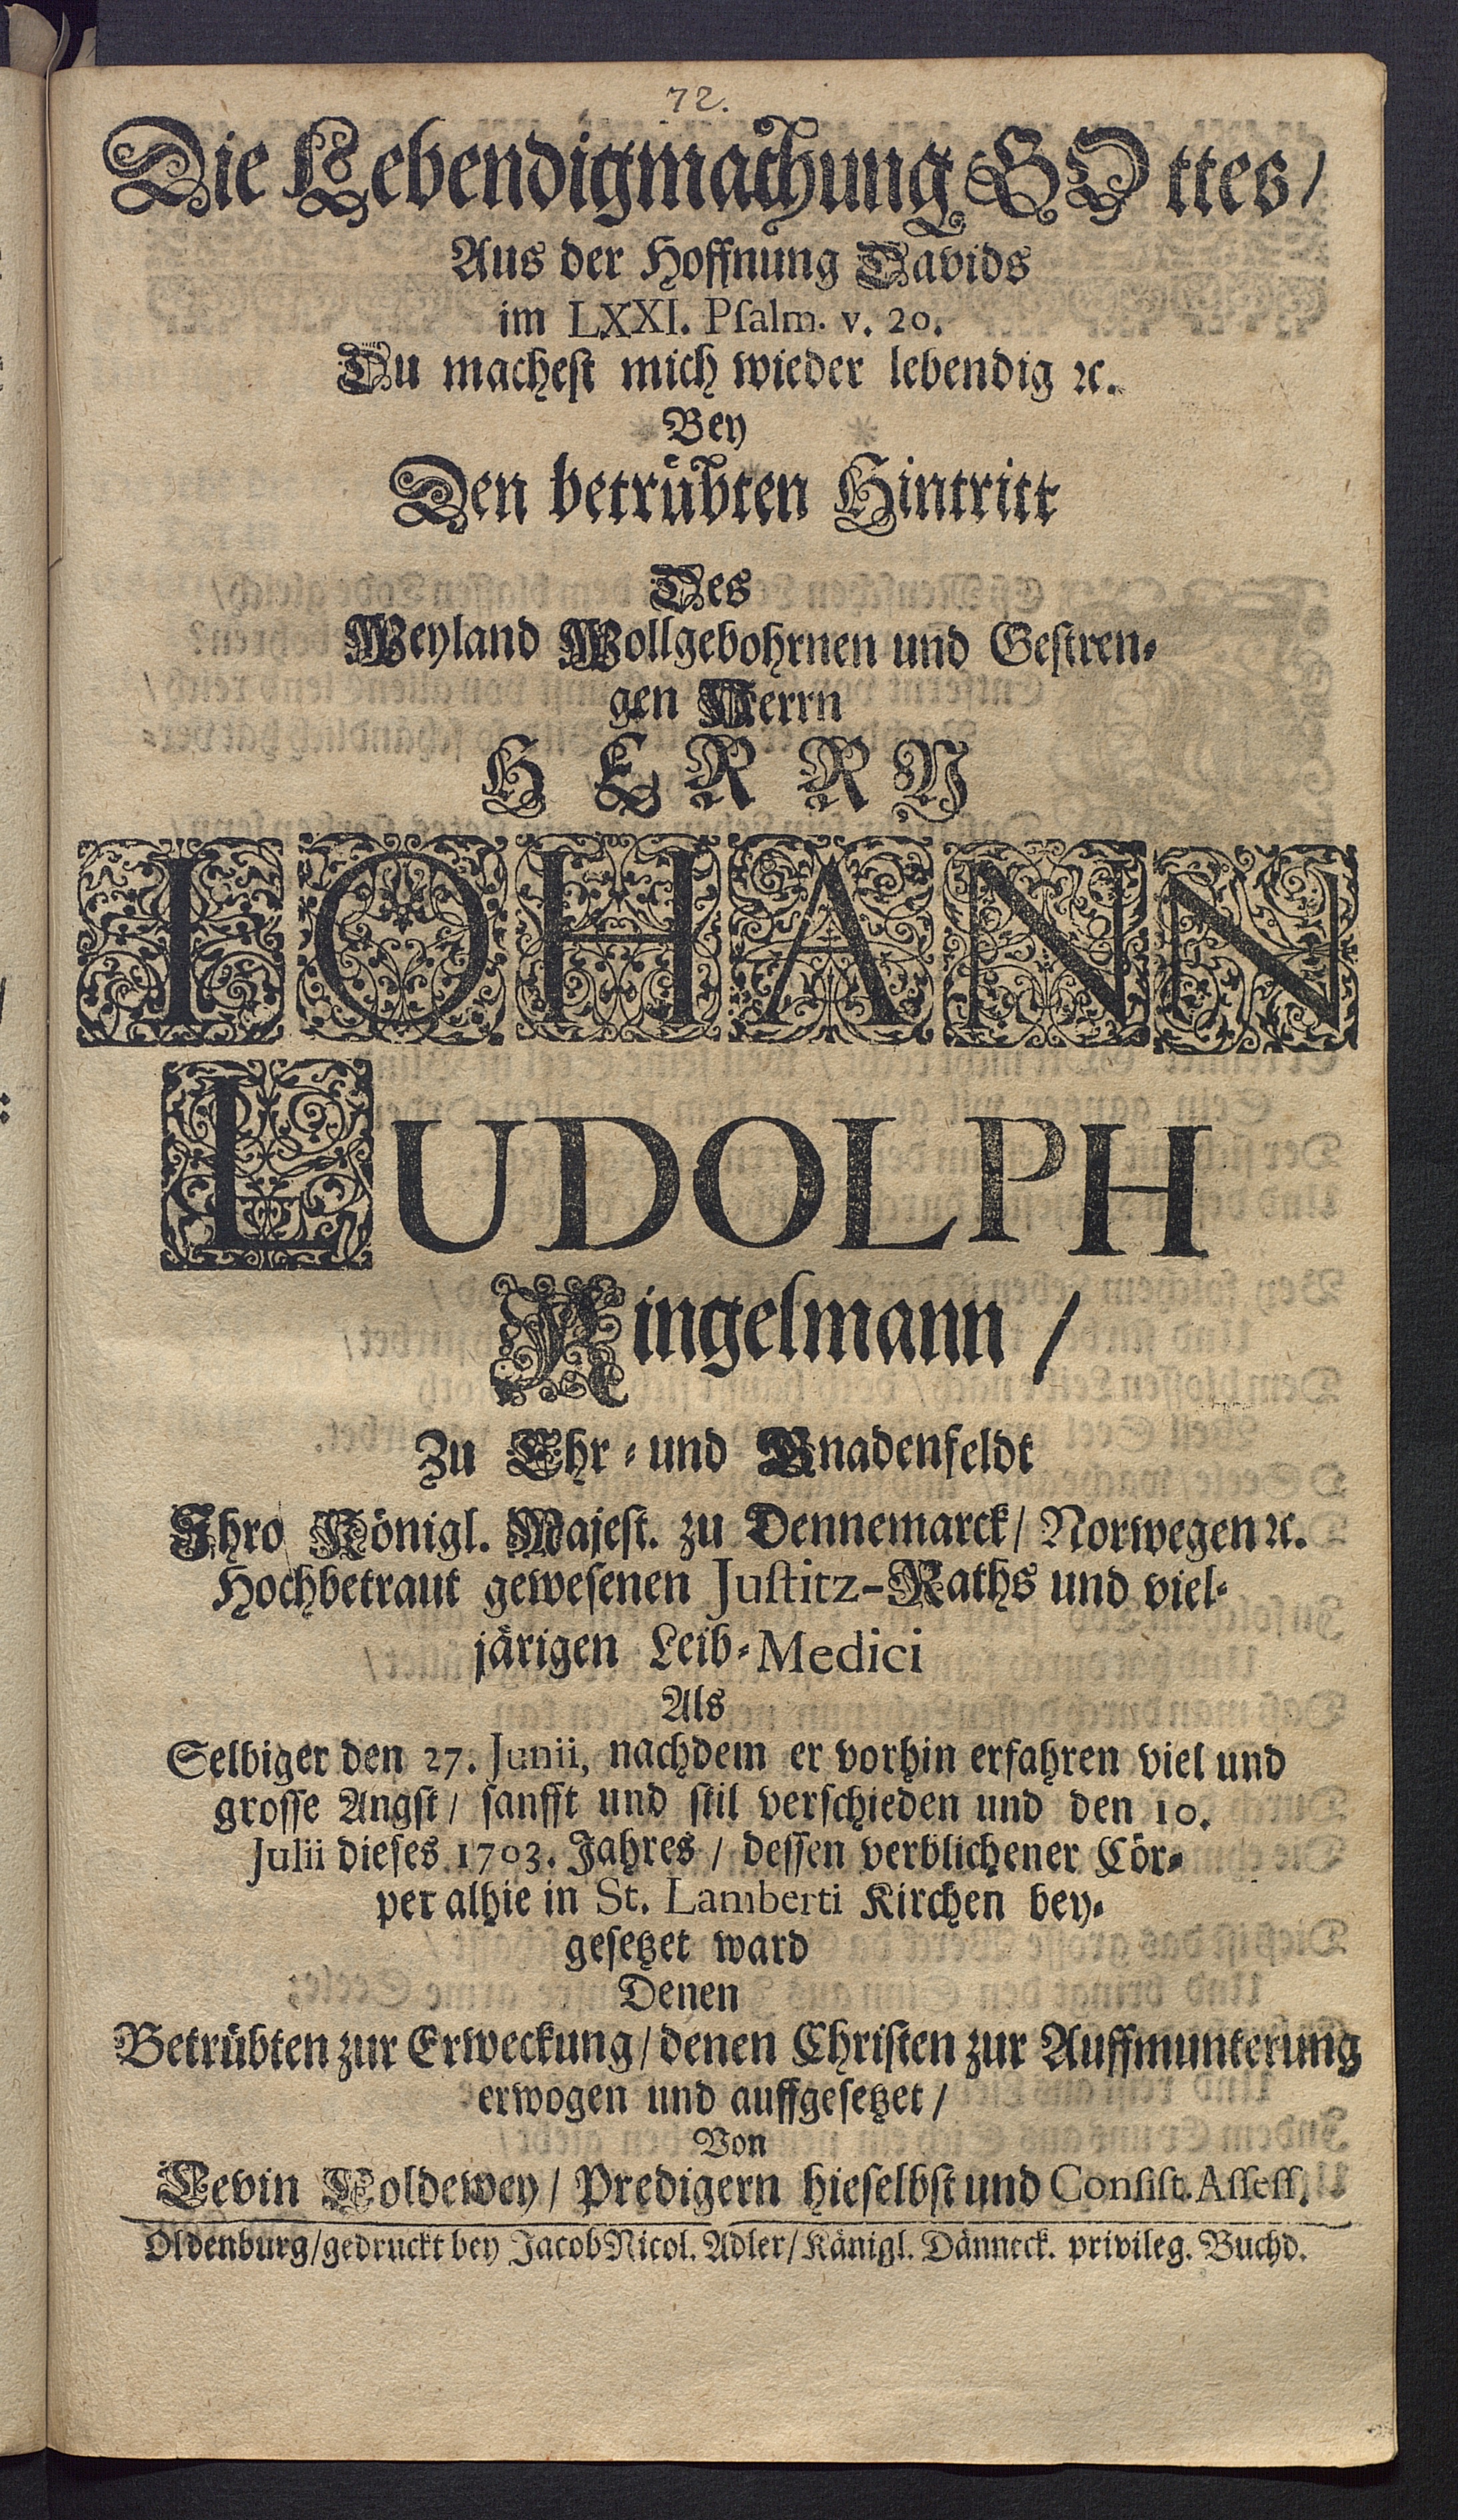 72.
Die Lebendigmachung GOttes/
Aus der Hoffnung Davids
im LXXI. Psalm. v. 20.
Du machest mich wieder lebendig ꝛc.
Bey
Den betrübten Hintritt
Des
Weyland Wollgebohrnen und Gestren-
gen Herrn
HERRN
IOHANN
LUDOLPH
Ringelmann/
Zu Ehr- und Gnadenfeldt
Ihro Königl. Majest. zu Dennemarck/ Norwegen ꝛc.
Hochbetraut gewesenen Justitz-Raths und viel-
järigen Leib-Medici
Als
Selbiger den 27. Junii, nachdem er vorhin erfahren viel und
grosse Angst/ sanfft und stil verschieden und den 10.
Julii dieses 1703. Jahres/ dessen verblichener Cör-
per alhie in St. Lamberti Kirchen bey-
gesetzet ward
Denen
Betrübten zur Erweckung/ denen Christen zur Auffmunterung
erwogen und auffgesetzet/
Von
Levin Coldewey/ Predigern hieselbst und Consist. Assess.
Oldenburg/ gedruckt bey Jacob Nicol. Adler/ Känigl. Dänneck. privileg. Buchd.